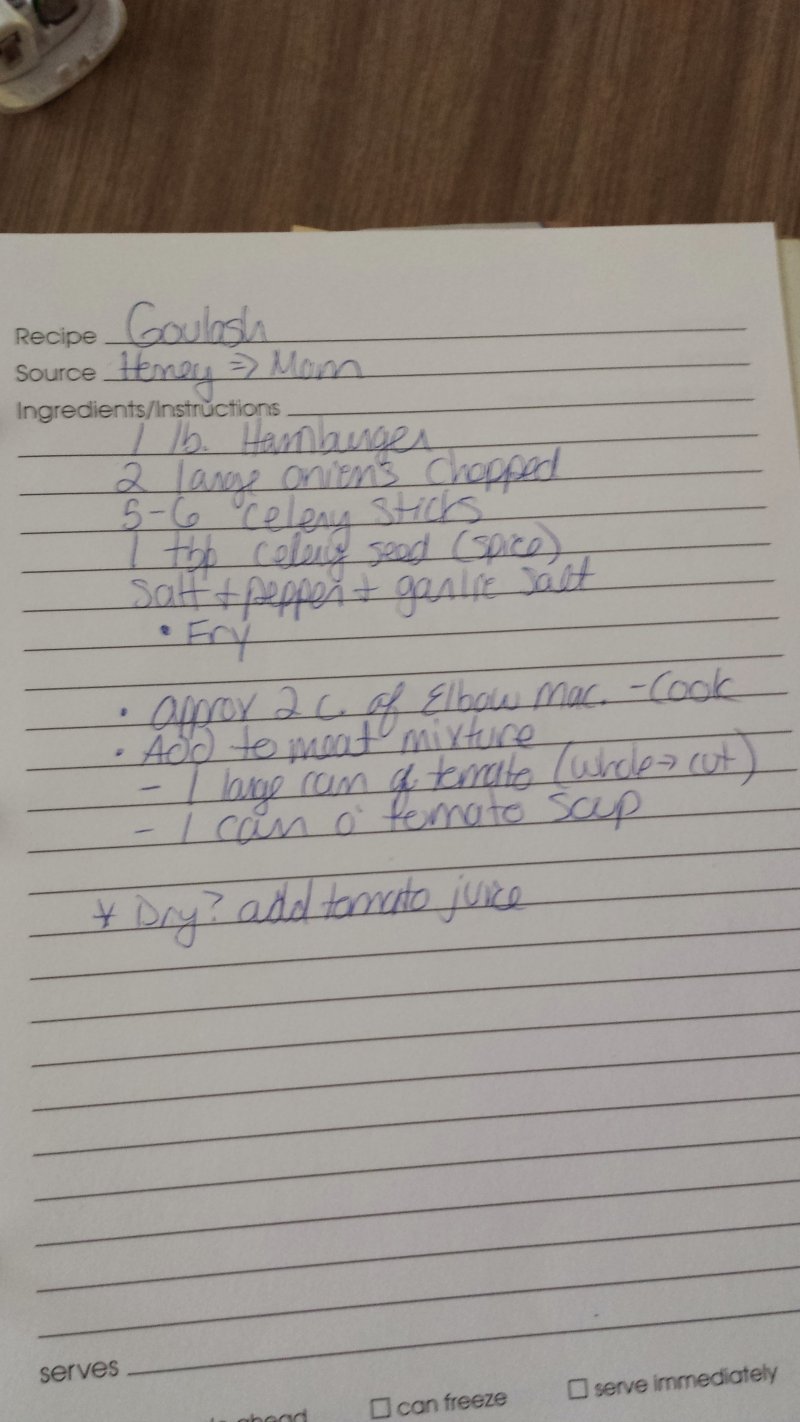 Recipe Goulash
Source Henney => Mom
Ingredients/Instructions
1 lb. Hamburger
2 large onions chopped
5-6 celery sticks
1 tbp celery seed (spice)
Salt + pepper + garlic salt
• Fry
• approx 2 c. of Elbow Mac. - Cook
• Add to meat mixture
- 1 large can of tomato (whole → cut)
- 1 can o' tomato soup
* Dry? add tomato juice
serves
ahead
☐ can freeze
☐ serve immediately